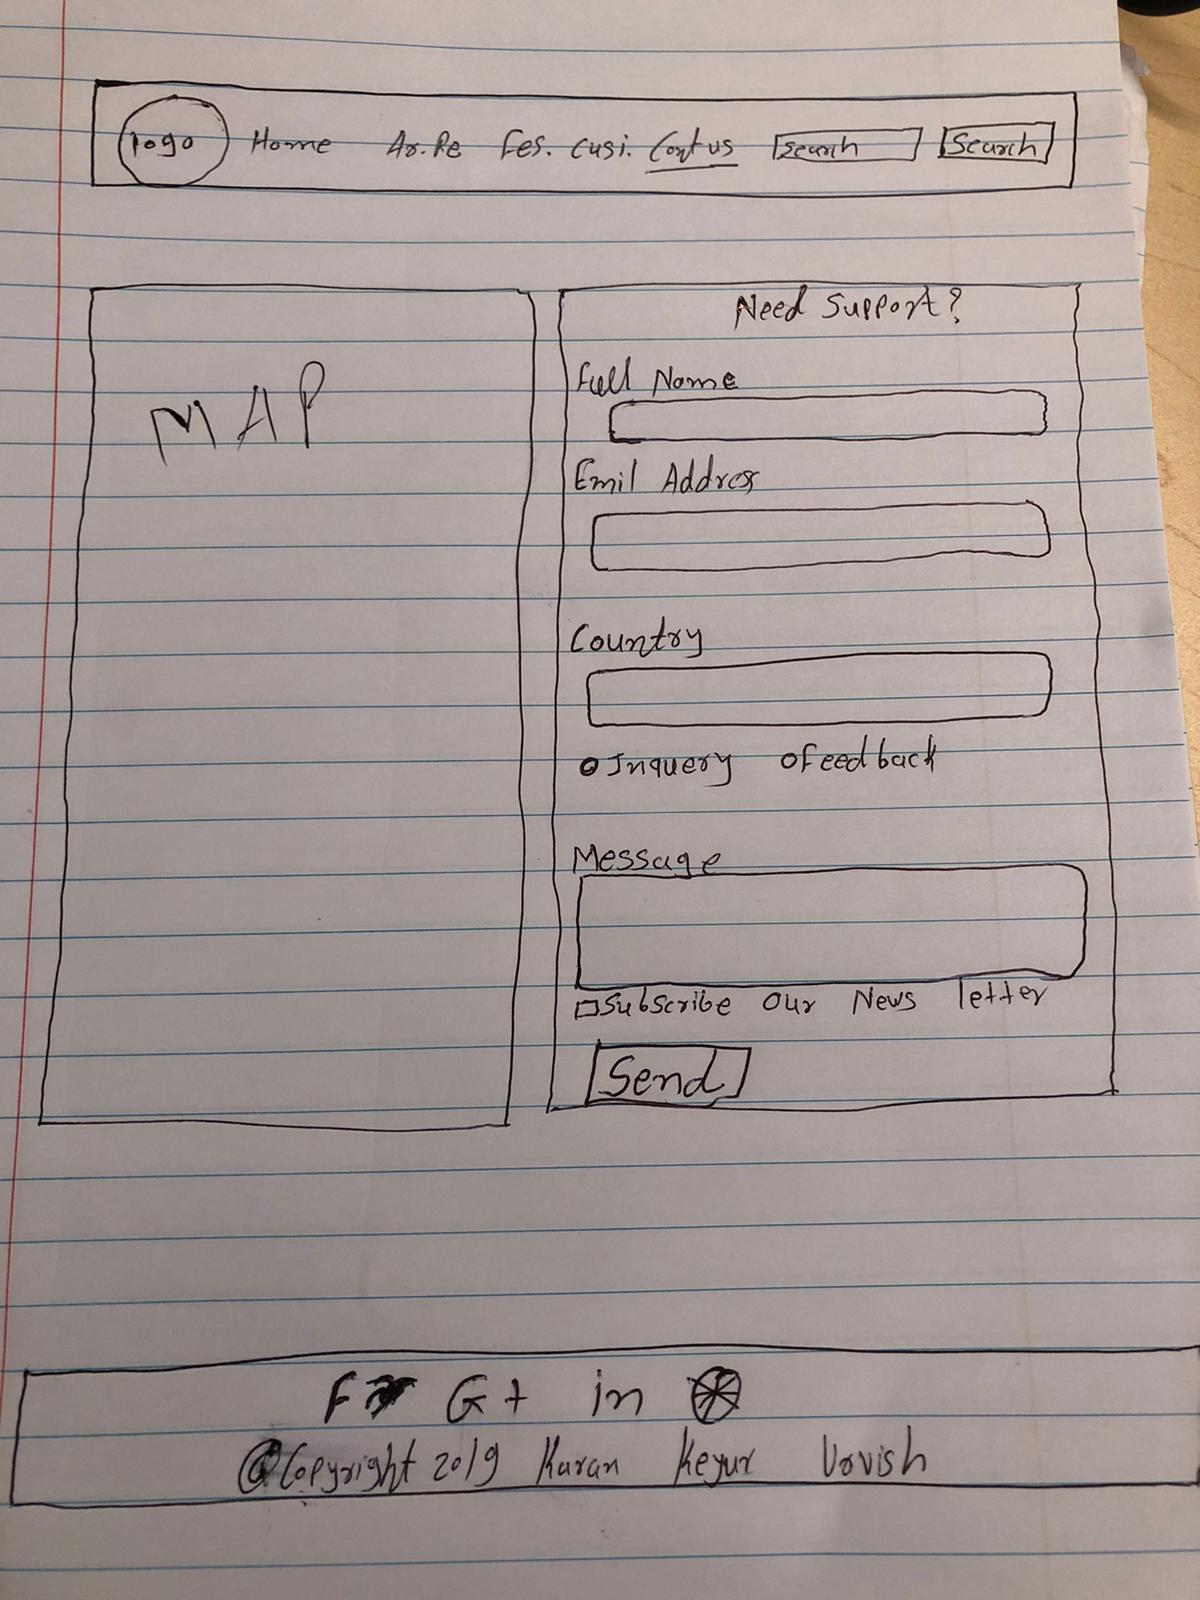 logo Home Ar.Pe Fes. Cusi. Contus Search Search
MAP
Need Support?
Full Name
Emil Address
Country
Inquery Feedback
Message
Subscribe Our News letter
Send
F G+ in
©Copyright 2019 Karan Keyur Urvish